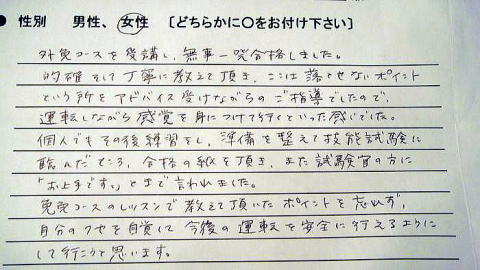 ● 性別　男性、女性　〔どちらかに○をお付け下さい〕
外免コースを受講し、無事一発合格しました。
的確そして丁寧に教えて頂き、ここは落とせないポイント
という所をアドバイス受けながらのご指導でしたので、
運転しながら感覚を身につけて行くといった感じでした。
個人でもその後練習をし、準備を整えて技能試験に
臨んだところ、合格の紙を頂き、また試験官の方に
「お上手です。」とまで言われました。
免コースのレッスンで教えて頂いたポイントを忘れず、
自分のクセを自覚して今後の運転を安全に行えるように
して行こうと思います。